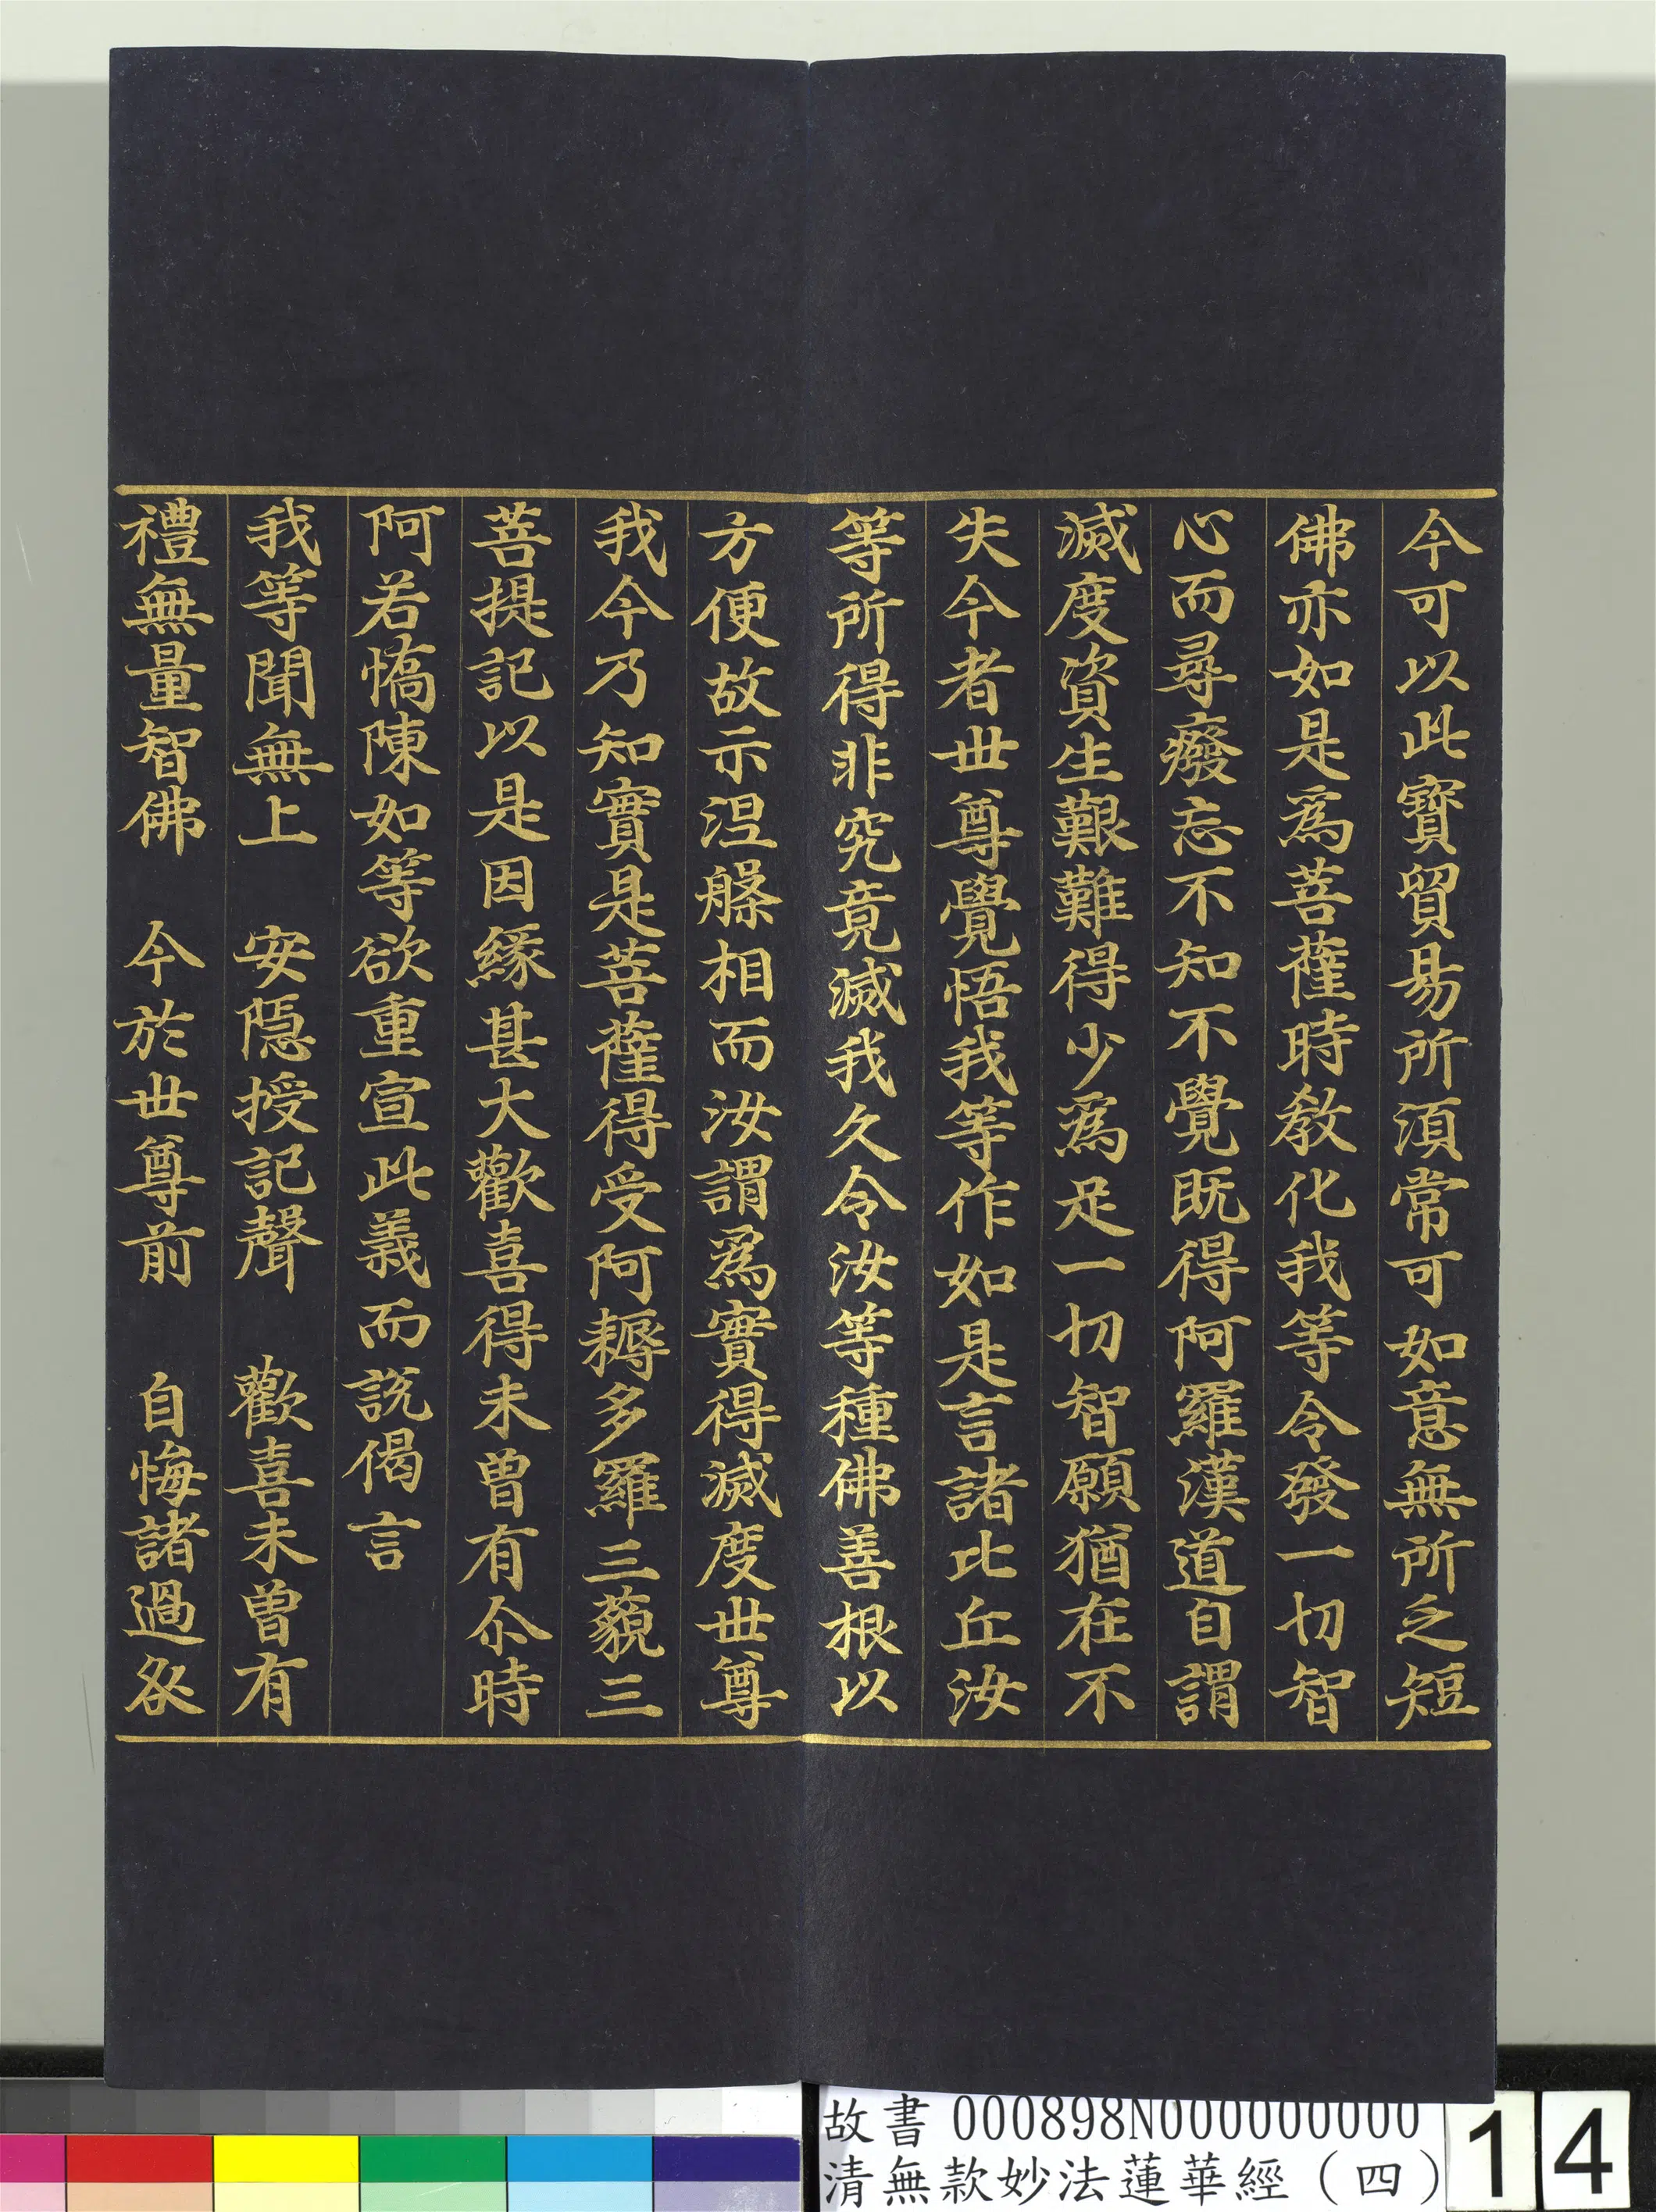 今可以此寶貿易所須常可如意無所乏短
佛亦如是爲菩薩時教化我等令發一切智
心而尋癈忘不知不覺既得阿羅漢道自謂
滅度資生艱難得少爲足一切智願猶在不
失今者世尊覺悟我等作如是言諸比丘汝
等所得非究竟滅我久令汝等種佛善根以
方便故示涅槃相而汝謂爲實得滅度世尊
我今乃知實是菩薩得受阿耨多羅三藐三
菩提記以是因緣甚大歡喜得未曾有尒時
阿若憍陳如等欲重宣此義而說偈言
我等聞無上　安隱授記聲　歡喜未曾有
禮無量智佛　今於世尊前　自悔諸過咎
故書 000898N000000000
清無款妙法蓮華經（四）
14